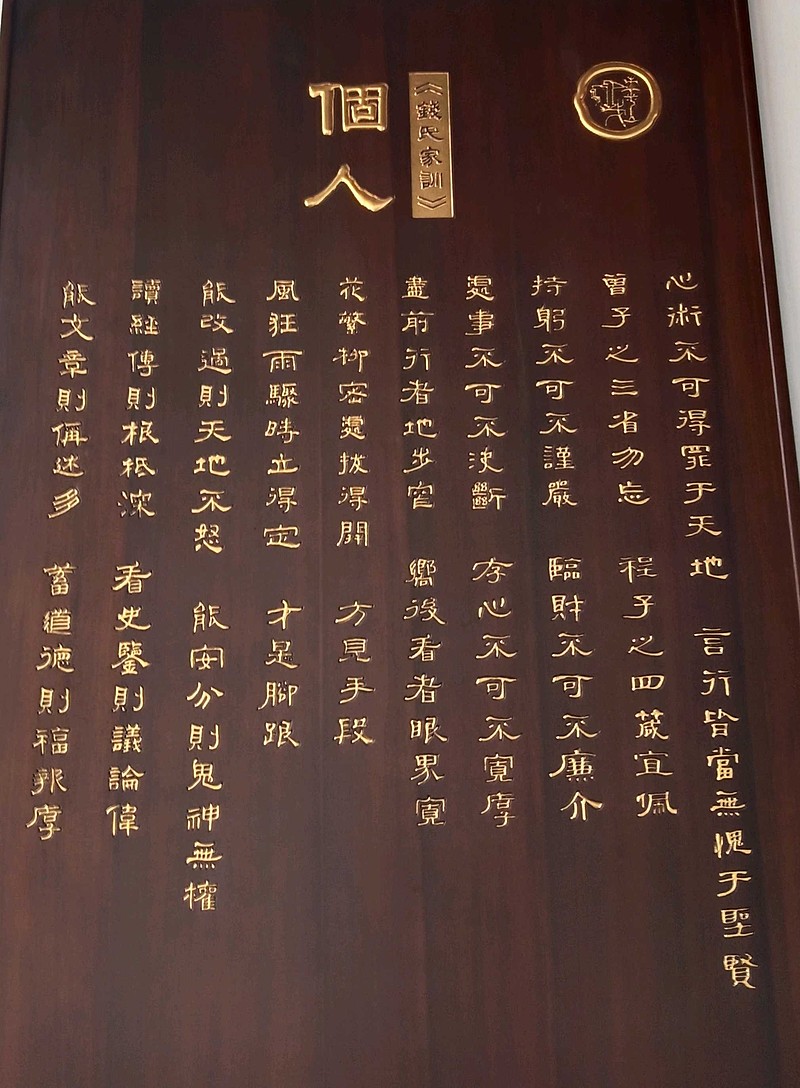 《錢氏家訓》
個人
心術不可得罪于天地 言行皆當無愧于聖賢
曾子之三省勿忘 程子之四箴宜佩
持躬不可不謹嚴 臨財不可不廉介
處事不可不決斷 存心不可不寬厚
盡前行者地步窄 嚮後看者眼界寬
花繁柳密處拔得開 方見手段
風狂雨驟時立得定 才是腳跟
能改過則天地不怒 能安分則鬼神無權
讀經傳則根柢深 看史鑒則議論偉
能文章則稱述多 蓄道德則福報厚